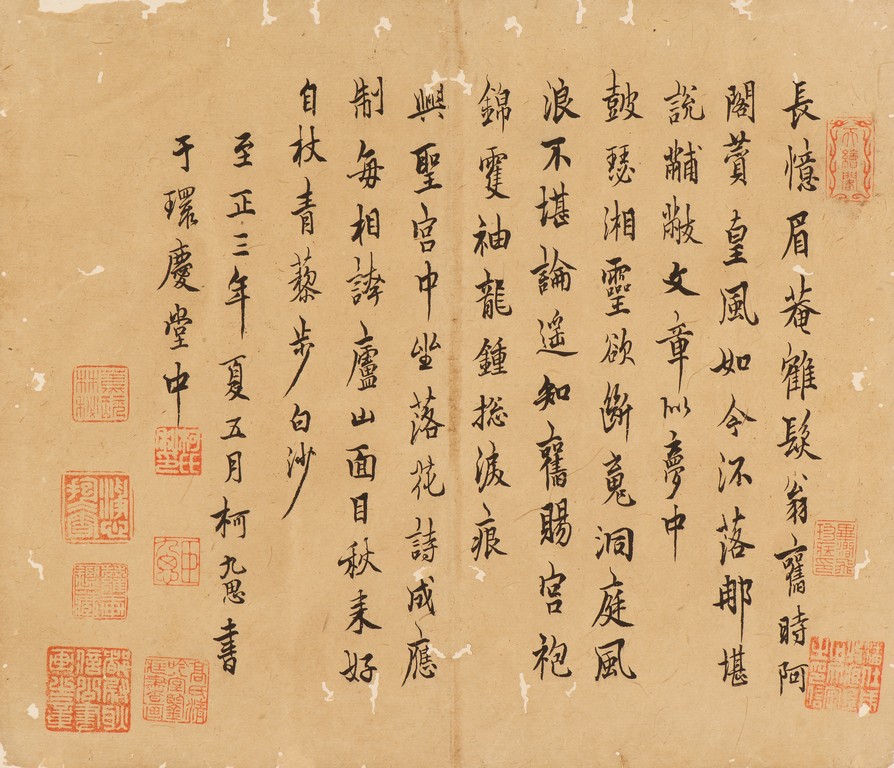 長憶眉菴鶴髮翁舊時阿
閣賛皇風如今沠落那堪
說黼黻文章似夢中
鼓瑟湘靈欲斷䰟洞庭風
浪不堪論遥知舊賜宮袍
錦雙袖龍鍾揔淚痕
興聖宮中坐落花詩成應
制每相誇廬山面目秋來好
自杖青藜步白沙
至正三年夏五月柯九思書
于環慶堂中